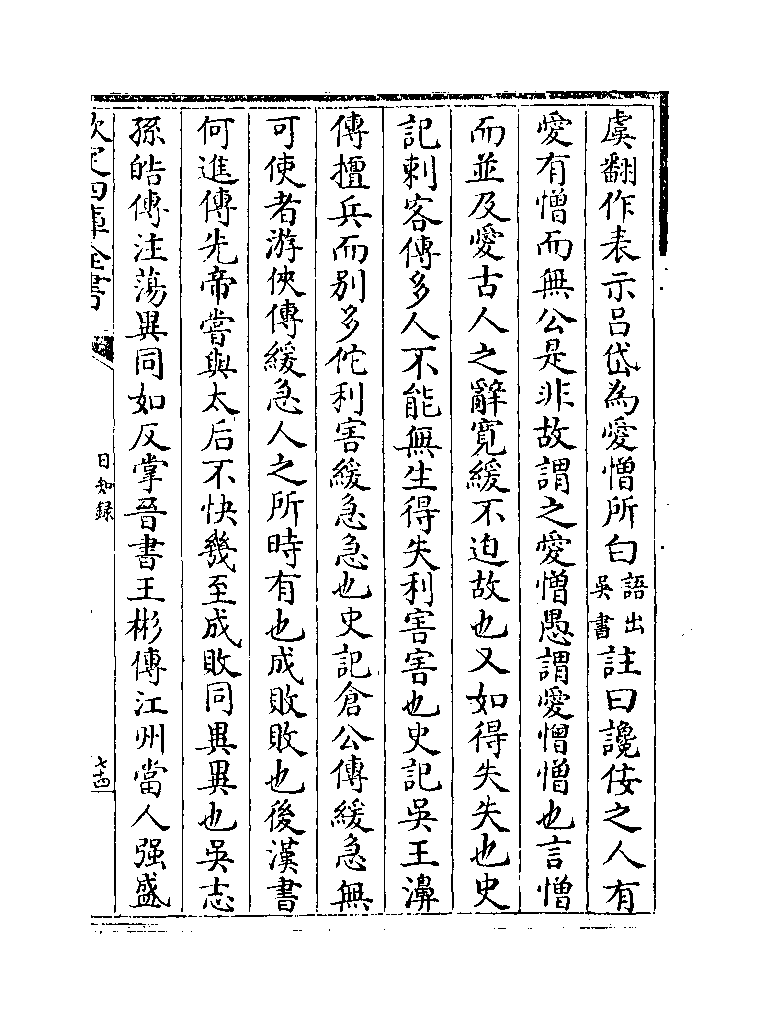 虞翻作表示呂岱為愛憎所白語出吳書註曰讒佞之人有
愛有憎而無公是非故謂之愛憎愚謂愛憎憎也言憎
而並及愛古人之辭寛緩不迫故也又如得失失也史
記刺客傳多人不能無生得失利害害也史記吳王濞
傳擅兵而别多佗利害緩急急也史記倉公傳緩急無
可使者游俠傳緩急人之所時有也成敗敗也後漢書
何進傳先帝嘗與太后不快幾至成敗同異異也吳志
孫皓傳注蕩異同如反掌晉書王彬傳江州當人强盛
欽定四庫全書
日知録
七十四